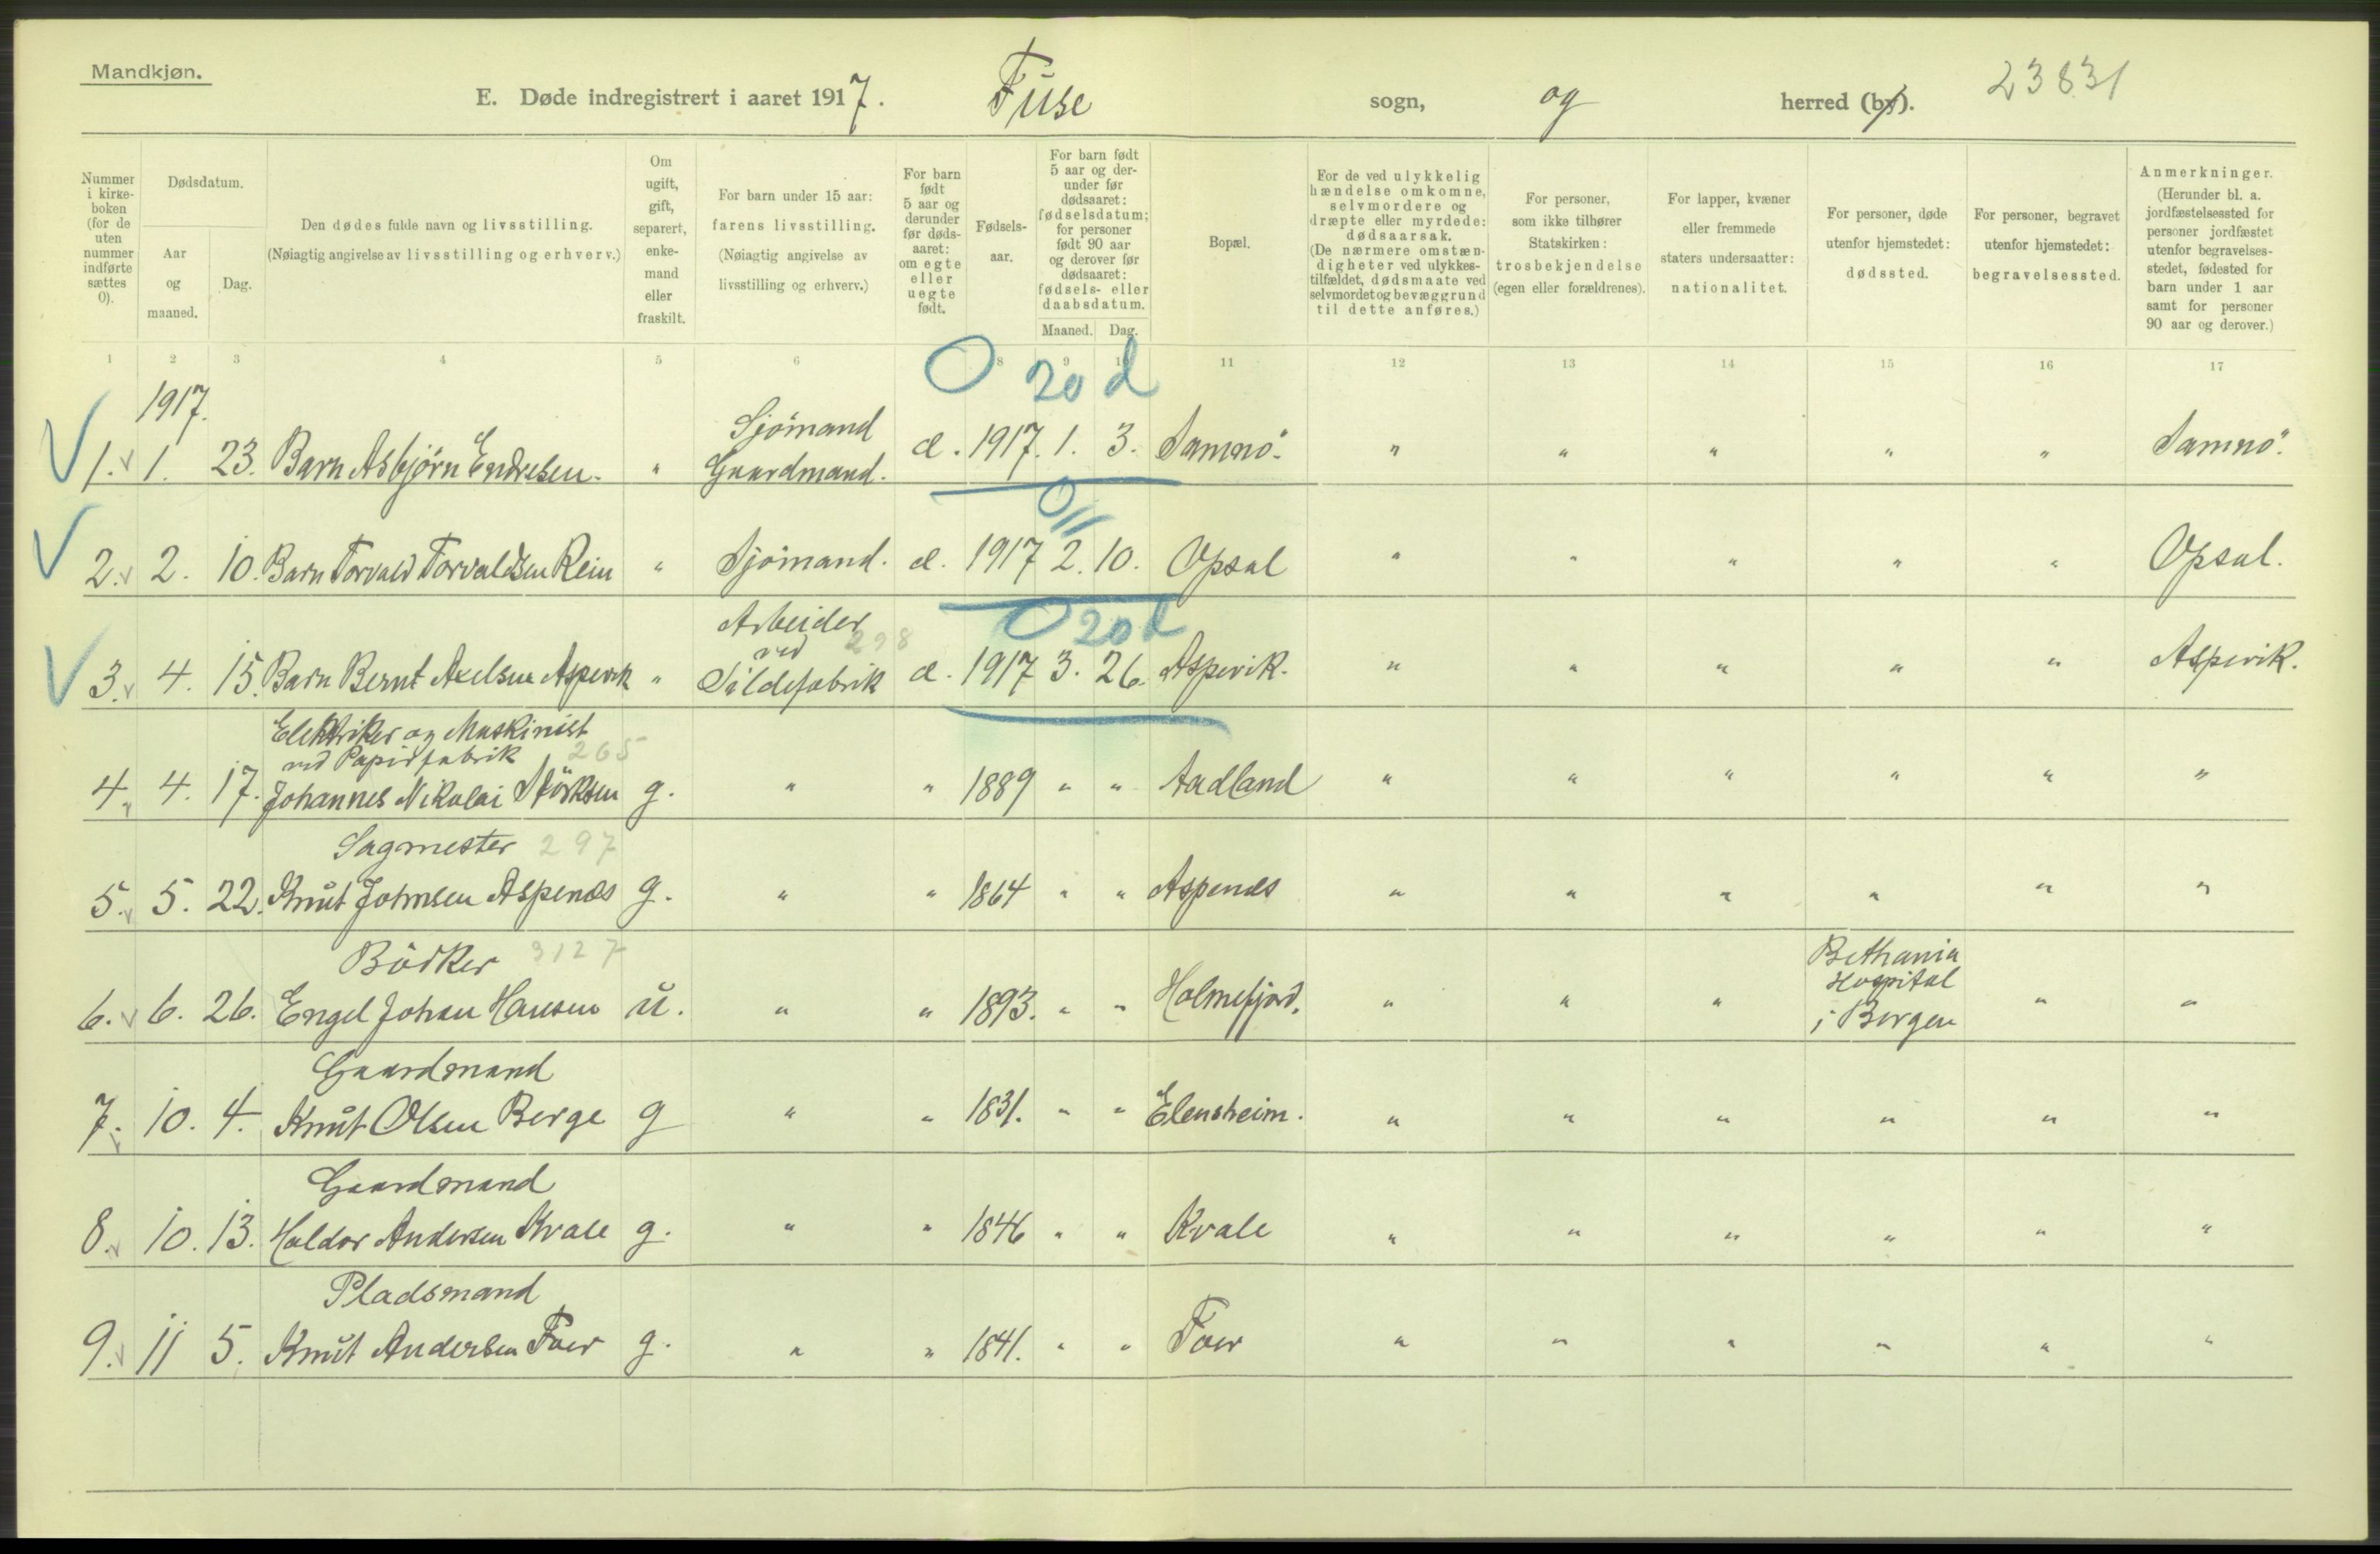 Mandkjøn.
E. Døde indregistrert i aaret 1917. Fuse sogn, og herred (by). 23831
Nummer i kirke-boken (for de uten nummer indførte sættes 0).
Dødsdatum.
Aar og maaned.
Dag.
Den dødes fulde navn og livsstilling.
(Nøiagtig angivelse av livsstilling og erhverv.)
Om ugift, gift, separert, enke-mand eller fraskilt.
For barn under 15 aar: farens livsstilling.
(Nøiagtig angivelse av livsstilling og erhverv.)
For barn født 5 aar og derunder før døds-aaret: om egte eller uegte født.
Fødsels-aar.
For barn født 5 aar og der-under før dødsaaret: fødselsdatum; for personer født 90 aar og derover før dødsaaret: fødsels- eller daabsdatum.
Maaned. Dag.
Bopæl.
For de ved ulykkelig hændelse omkomne, selvmordere og dræpte eller myrdede: dødsaarsak.
(De nærmere omstæn-digheter ved ulykkes-tilfældet, dødsmaate ved selvmordet og bevæggrund til dette anføres.)
For personer, som ikke tilhører Statskirken: trosbekjendelse (egen eller forældrenes).
For lapper, kvæner eller fremmede staters undersaatter: nationalitet.
For personer, døde utenfor hjemstedet: dødssted.
For personer, begravet utenfor hjemstedet: begravelsessted.
Anmerkninger.
(Herunder bl. a. jordfæstelsessted for personer jordfæstet utenfor begravelses-stedet, fødested for barn under 1 aar samt for personer 90 aar og derover.)
1 2 3 4 5 6 8 9 10 11 12 13 14 15 16 17
0 20 d
1917.
Sjömand
1. 1. 23. Barn Asbjørn Endresen. " Gaardmand. æ. 1917. 1. 3. Samnö. " " " " " Samnö.
0 11
2. 2. 10. Barn Torvald Torvaldsen Rein " Sjömand. æ. 1917 2. 10. Opsal " " " " " Opsal.
0 20 d
Arbeider
ved 298
3. 4. 15. Barn Bernt Axelsen Aspevik " Sildefabrik æ. 1917 3. 26. Aspevik. " " " " " Aspevik.
Elektriker og Maskinist
ved Papirfabrik 265
4. 4. 17. Johannes Nikolai Störksen g. " " 1889 " " Aadland " " " " " "
Sagmester 297
5. 5. 22. Knut Johnsen Aspenes g. " " 1864 " " Aspenes " " " " " "
Bödker 3127
6. 6. 26. Engel Johan Hansen u. " " 1893. " " Holmefjord. " " " Bethania Hospital i Bergen " "
Gaardmand
7. 10. 4. Knut Olsen Berge g " " 1831. " " Elensheim. " " " " " "
Gaardmand
8. 10. 13. Haldor Andersen Kvale g. " " 1846 " " Kvale " " " " " "
Pladsmand
9. 11 5. Knut Andersen Foer g. " " 1841. " " Foer " " " " " "